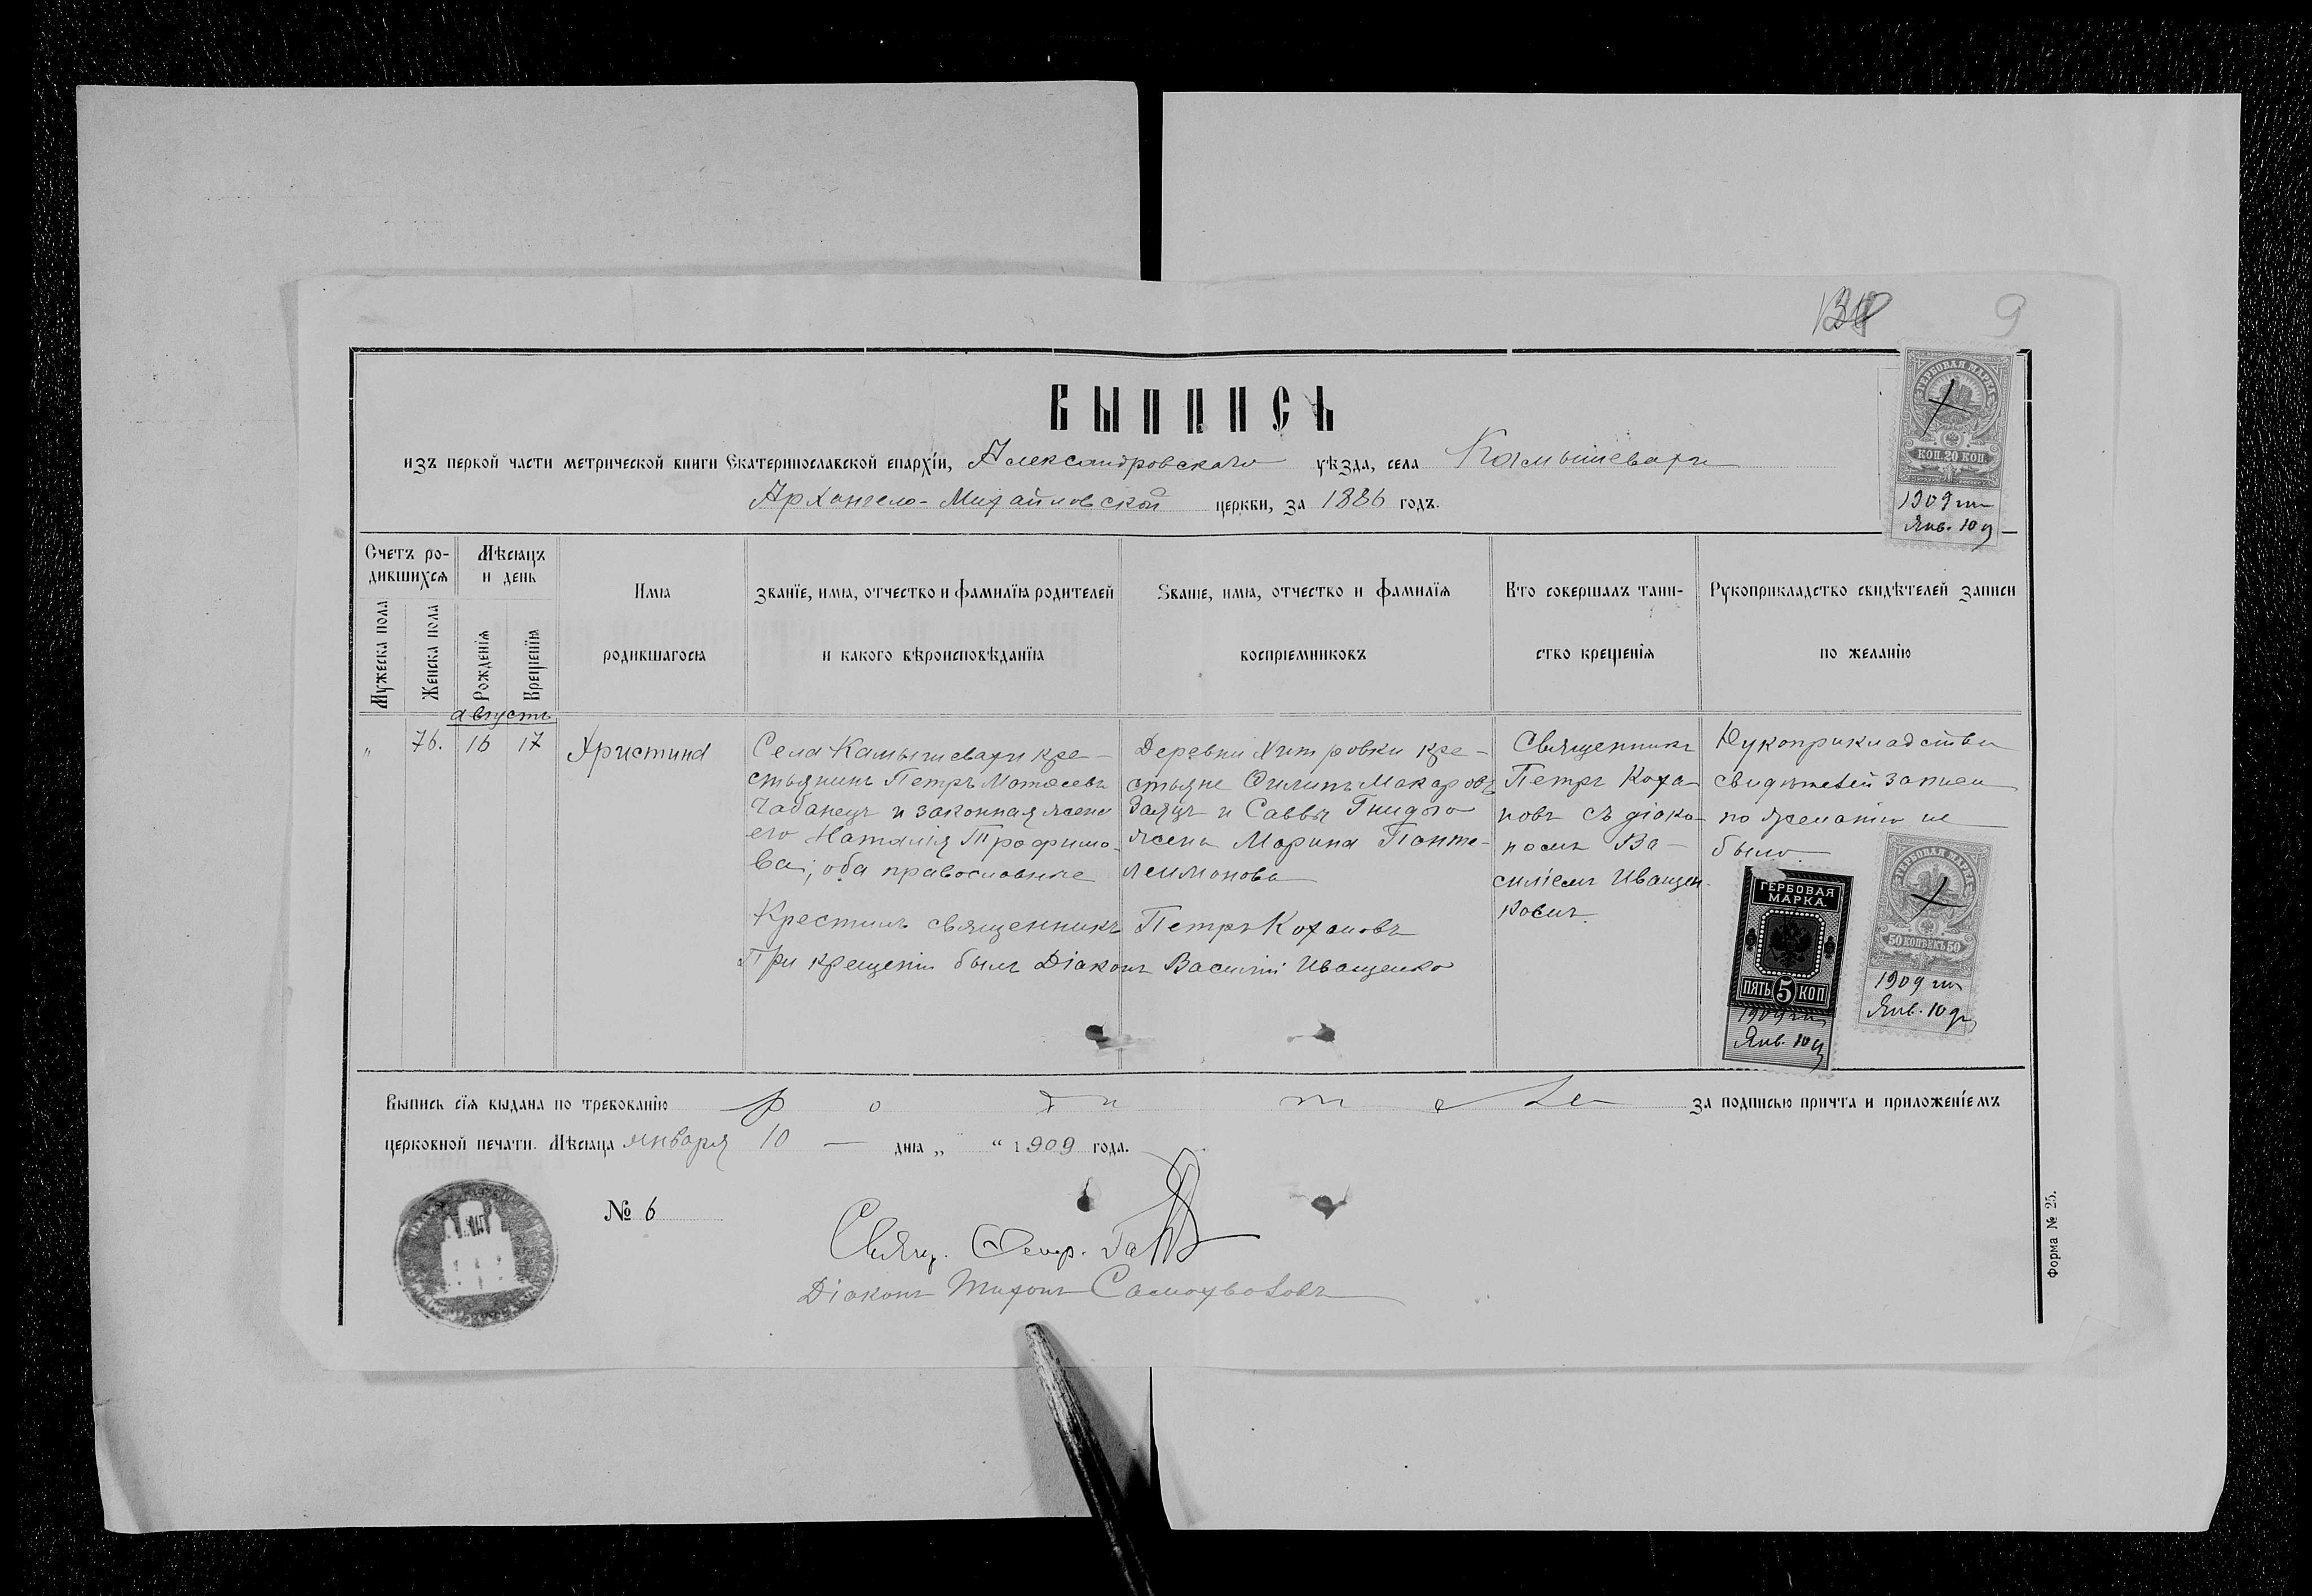 9
ВЫПИСЬ
изъ первой части метрической книги Екатеринославской епархіи, Александровскаго уѣзда, села Камышевахи
Архангело-Михайловской церкви, за 1886 годъ.
ГЕРБОВАЯ МАРКА
КОП. 20 КОП.
1909 г.
Янв. 10 д
Счетъ ро-
дившихся
Мужеска пола
Женска пола
Мѣсяцъ
и день
Рожденія
Крещенія
Имя
родившагося
Званіе, имя, отчество и фамилія родителей
и какого вѣроисповѣданія
Званіе, имя, отчество и фамилія
воспріемниковъ
Кто совершалъ таин-
ство крещенія
Рукоприкладство свидѣтелей записи
по желанію
августъ
„ 76. 16 17
Христина
Села Камышевахи кре-
стьянинъ Петръ Матѳеевъ
Чабанецъ и законная жена
его Наталія Трофимо-
ва; оба православные
Деревни Хитровки кре-
стьяне Филипъ Макаровъ
Заяцъ и Саввы Гнидого
жена Марина Панте-
леимонова
Священникъ
Петръ Коха-
новъ съ діако-
номъ Ва-
силіемъ Иващен-
ковымъ.
Рукоприкладства
свидѣтелей записи
по желанію не
было.
Крестилъ священникъ Петръ Кохановъ
При крещеніи былъ Діаконъ Василій Иващенко
ГЕРБОВАЯ
МАРКА.
ПЯТЬ 5 КОП
1909 г.
Янв. 10 д
ГЕРБОВАЯ МАРКА
50 КОПѢЕКЪ 50
1909 г.
Янв. 10 д
Выпись сія выдана по требованію родителей за подписью причта и приложеніемъ
церковной печати. Мѣсяца января 10 — дня „ “ 1909 года.
№ 6
Свящ.
Діаконъ Тихонъ Самохваловъ
Форма № 25.